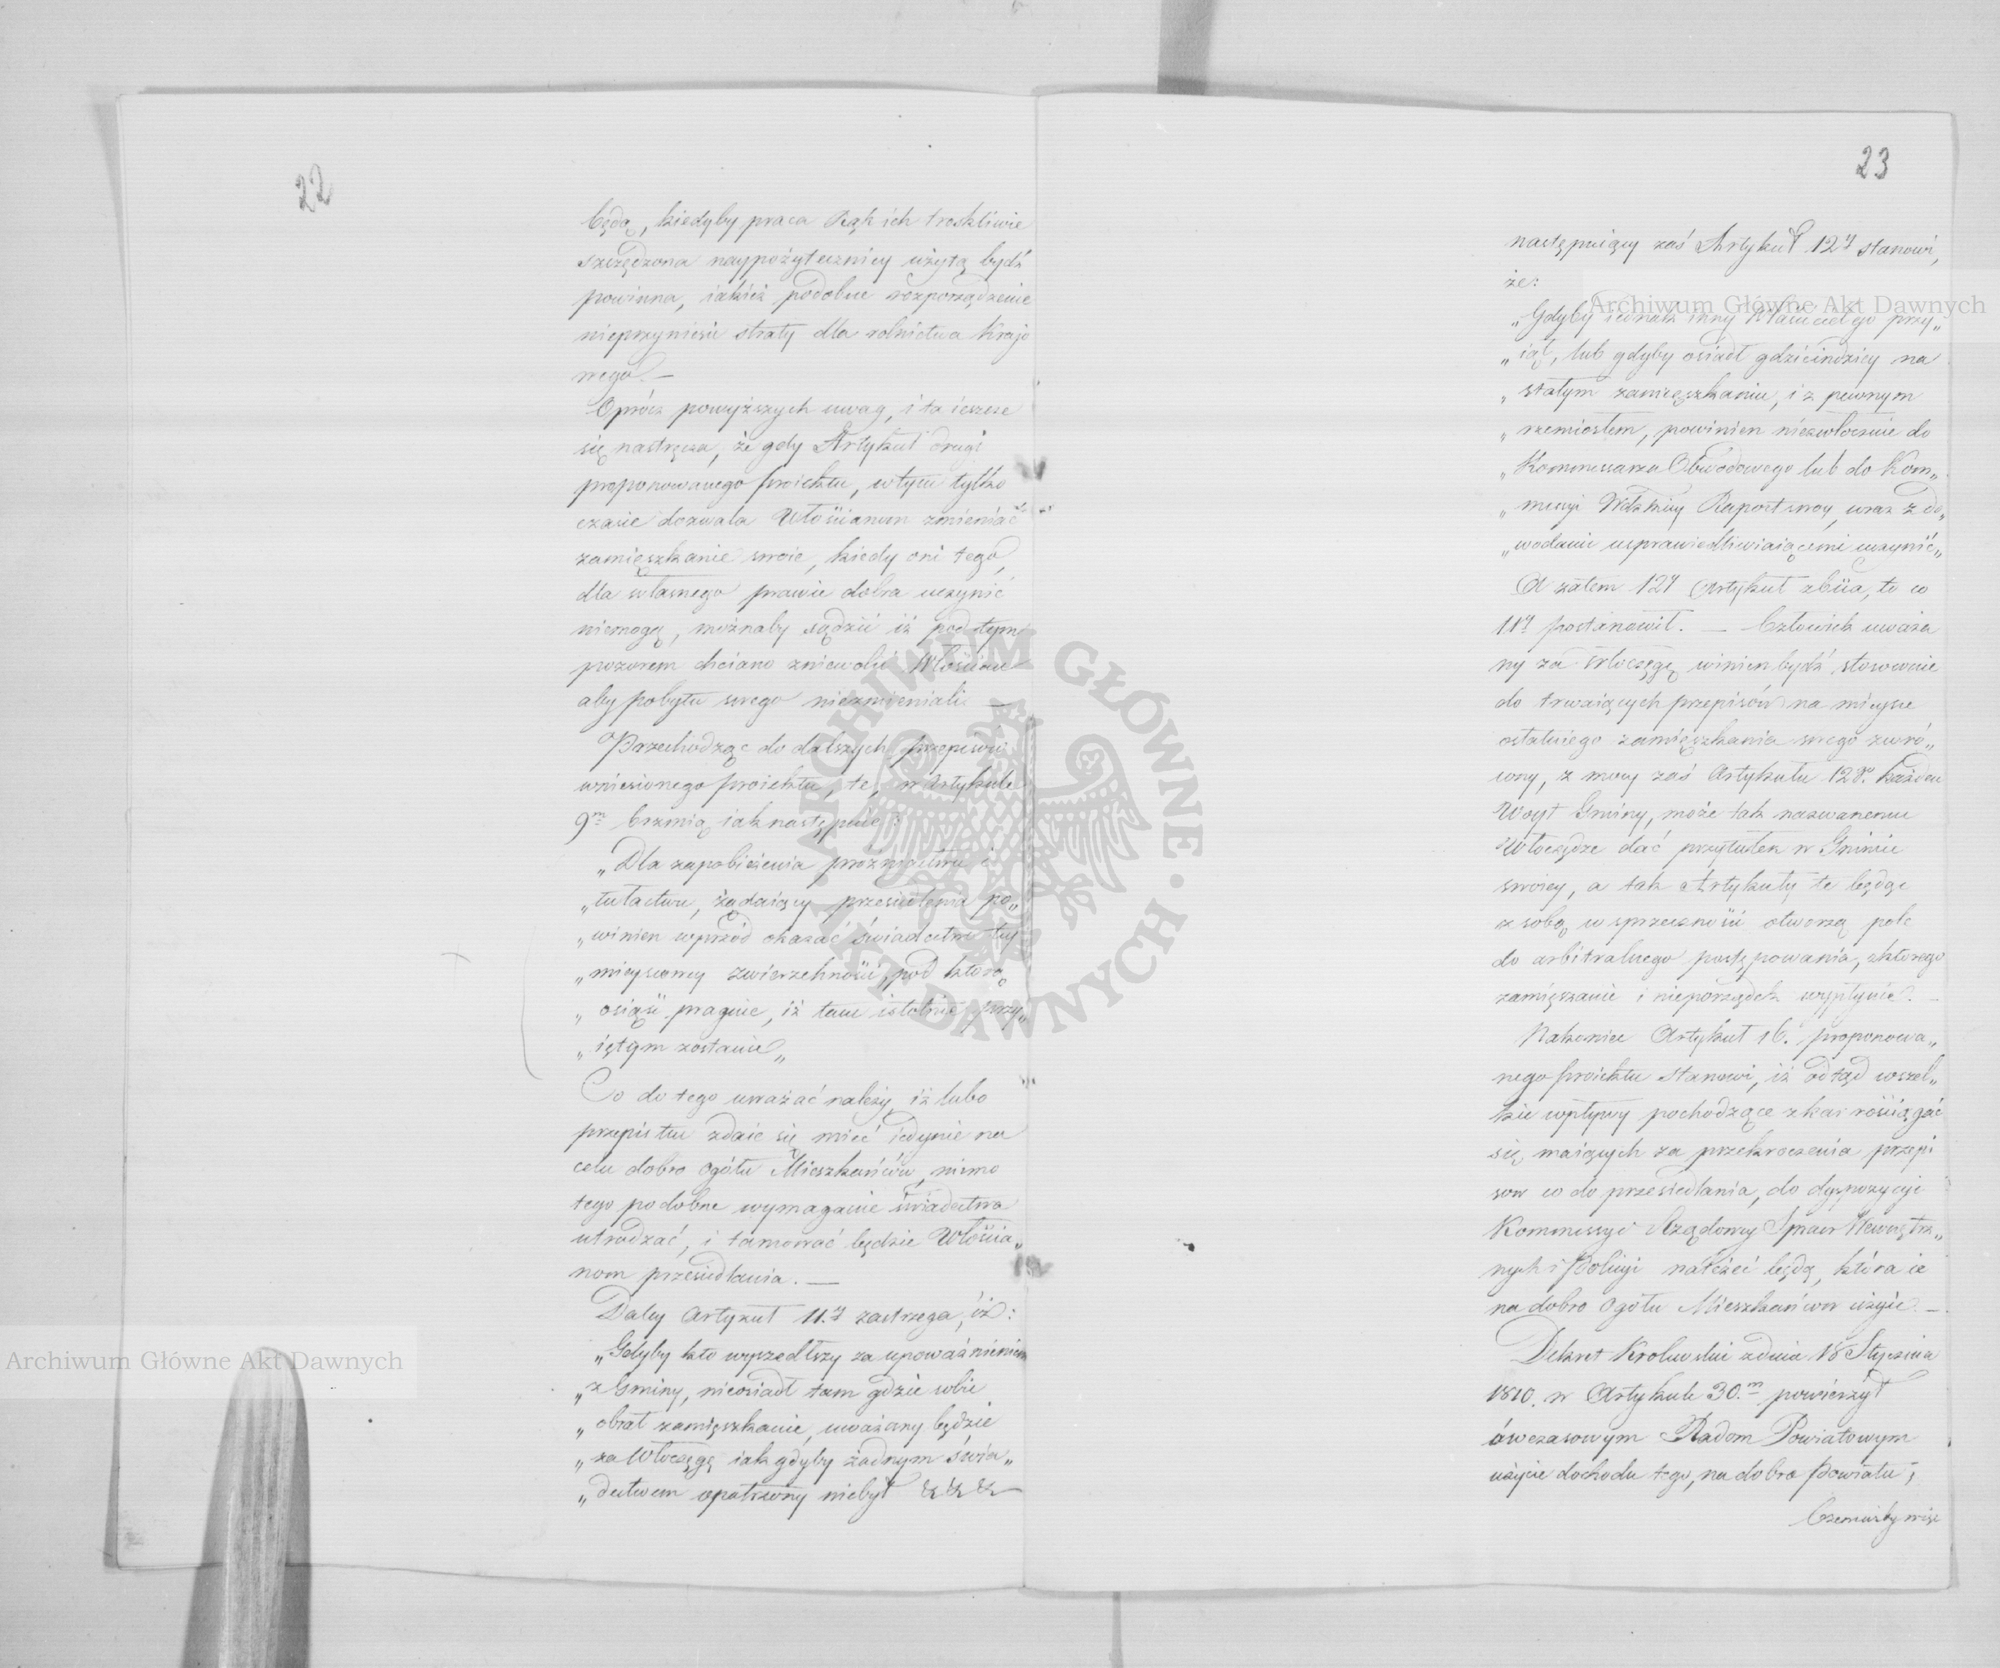 22
będą, kiedyby praca Rąk ich troskliwie
szczędzona naypożyteczniey użytą bydź
powinna, iakież podobne rozporządzenie
nieprzyniesie straty dla rolnictwa Krajo
wego. —
Oprócz powyższych uwag, i ta ieszcze
się nastręcza, że gdy Artykuł drugi
proponowanego proiektu, w tym tylko
czasie dozwala Włościanom zmieniać
zamięszkanie swoie, kiedy oni tego,
dla własnego prawie dobra uczynić
niemogą, możnaby sądzić iż pod tym
pozorem chciano zniewolić Włościan
aby pobytu swego niezmieniali —
Przechodząc do dalszych przepisów
wniesionego proiektu, te, w Artykule
9m brzmią iak następuie:
„Dla zapobieżenia próżniactwu i
„tułactwu, żądaiący przesiedlenia po„
„winien wprzód okazać świadectwo tey
„mieyscowey zwierzchności, pod którą
„osiąść pragnie, iż tam istotnie przy„
„iętym zostanie„
Co do tego uważać należy iż lubo
przepis ten zdaie się mieć iedynie na
celu dobro ogółu Mieszkańców, mimo
tego podobne wymaganie świadectwa
utrudzać, i tamować będzie Włościa„
nom przesiedlania. —
Daley Artykuł 11.y zastrzega, iż:
„Gdyby kto wyszedłszy za upoważnieniem
„z Gminy, nieosiadł tam gdzie sobie
„obrał zamięszkanie, uważany będzie
„za Włóczęgę iak gdyby żadnym świa„
„dectwem opatrzony niebył &c &c &c —
23
następuiący zaś Artykuł 12y stanowi,
że:
„Gdyby iednak inny Właściciel go przy„
„iął, lub gdyby osiadł gdzieindziey na
„stałym zamięszkaniu, i z pewnym
„rzemiosłem, powinien niezwłocznie do
„Kommissarza Obwodowego lub do Kom„
„missyi Wdzkiey Raport swoy, wraz z do„
„wodami usprawiedliwiaiącemi uczynić„
A zatem 12y Artykuł zbiia, to co
11ty postanowił. — Człowiek uważa
ny za Włóczęgę winien bydź stosownie
do trwaiących przepisów na mieysce
ostatniego zamięszkania swego zwró„
cony, z mocy zaś Artykułu 12go. każden
Woyt Gminy, może tak nazwanemu
Włóczędze dać przytułek w Gminie
swoiey, a tak Artykuły te będąc
z sobą w sprzeczności otworzą pole
do arbitralnego postępowania, z którego
zamięszanie i nieporządek wypłynie. —
Nakoniec Artykuł 16. proponowa„
nego proiektu stanowi, iż odtąd wszel„
kie wpływy pochodzące z kar rościągać
się maiących za przekroczenia przepi
sow co do przesiedlania, do dyspozycyi
Kommissyi Rządowey Spraw Wewnętrz„
nych i Policyi należeć będą, która ie
na dobro ogółu Mieszkańców użyie. —
Dekret Krolewski z dnia 18 Stycznia
1810. w Artykule 30.m powierzył
ówczasowym Radom Powiatowym
użycie dochodu tego, na dobro Powiatu;
Czemużby więc
Archiwum Główne Akt Dawnych
Archiwum Główne Akt Dawnych
ARCHIWUM GŁÓWNE · AKT DAWNYCH ·